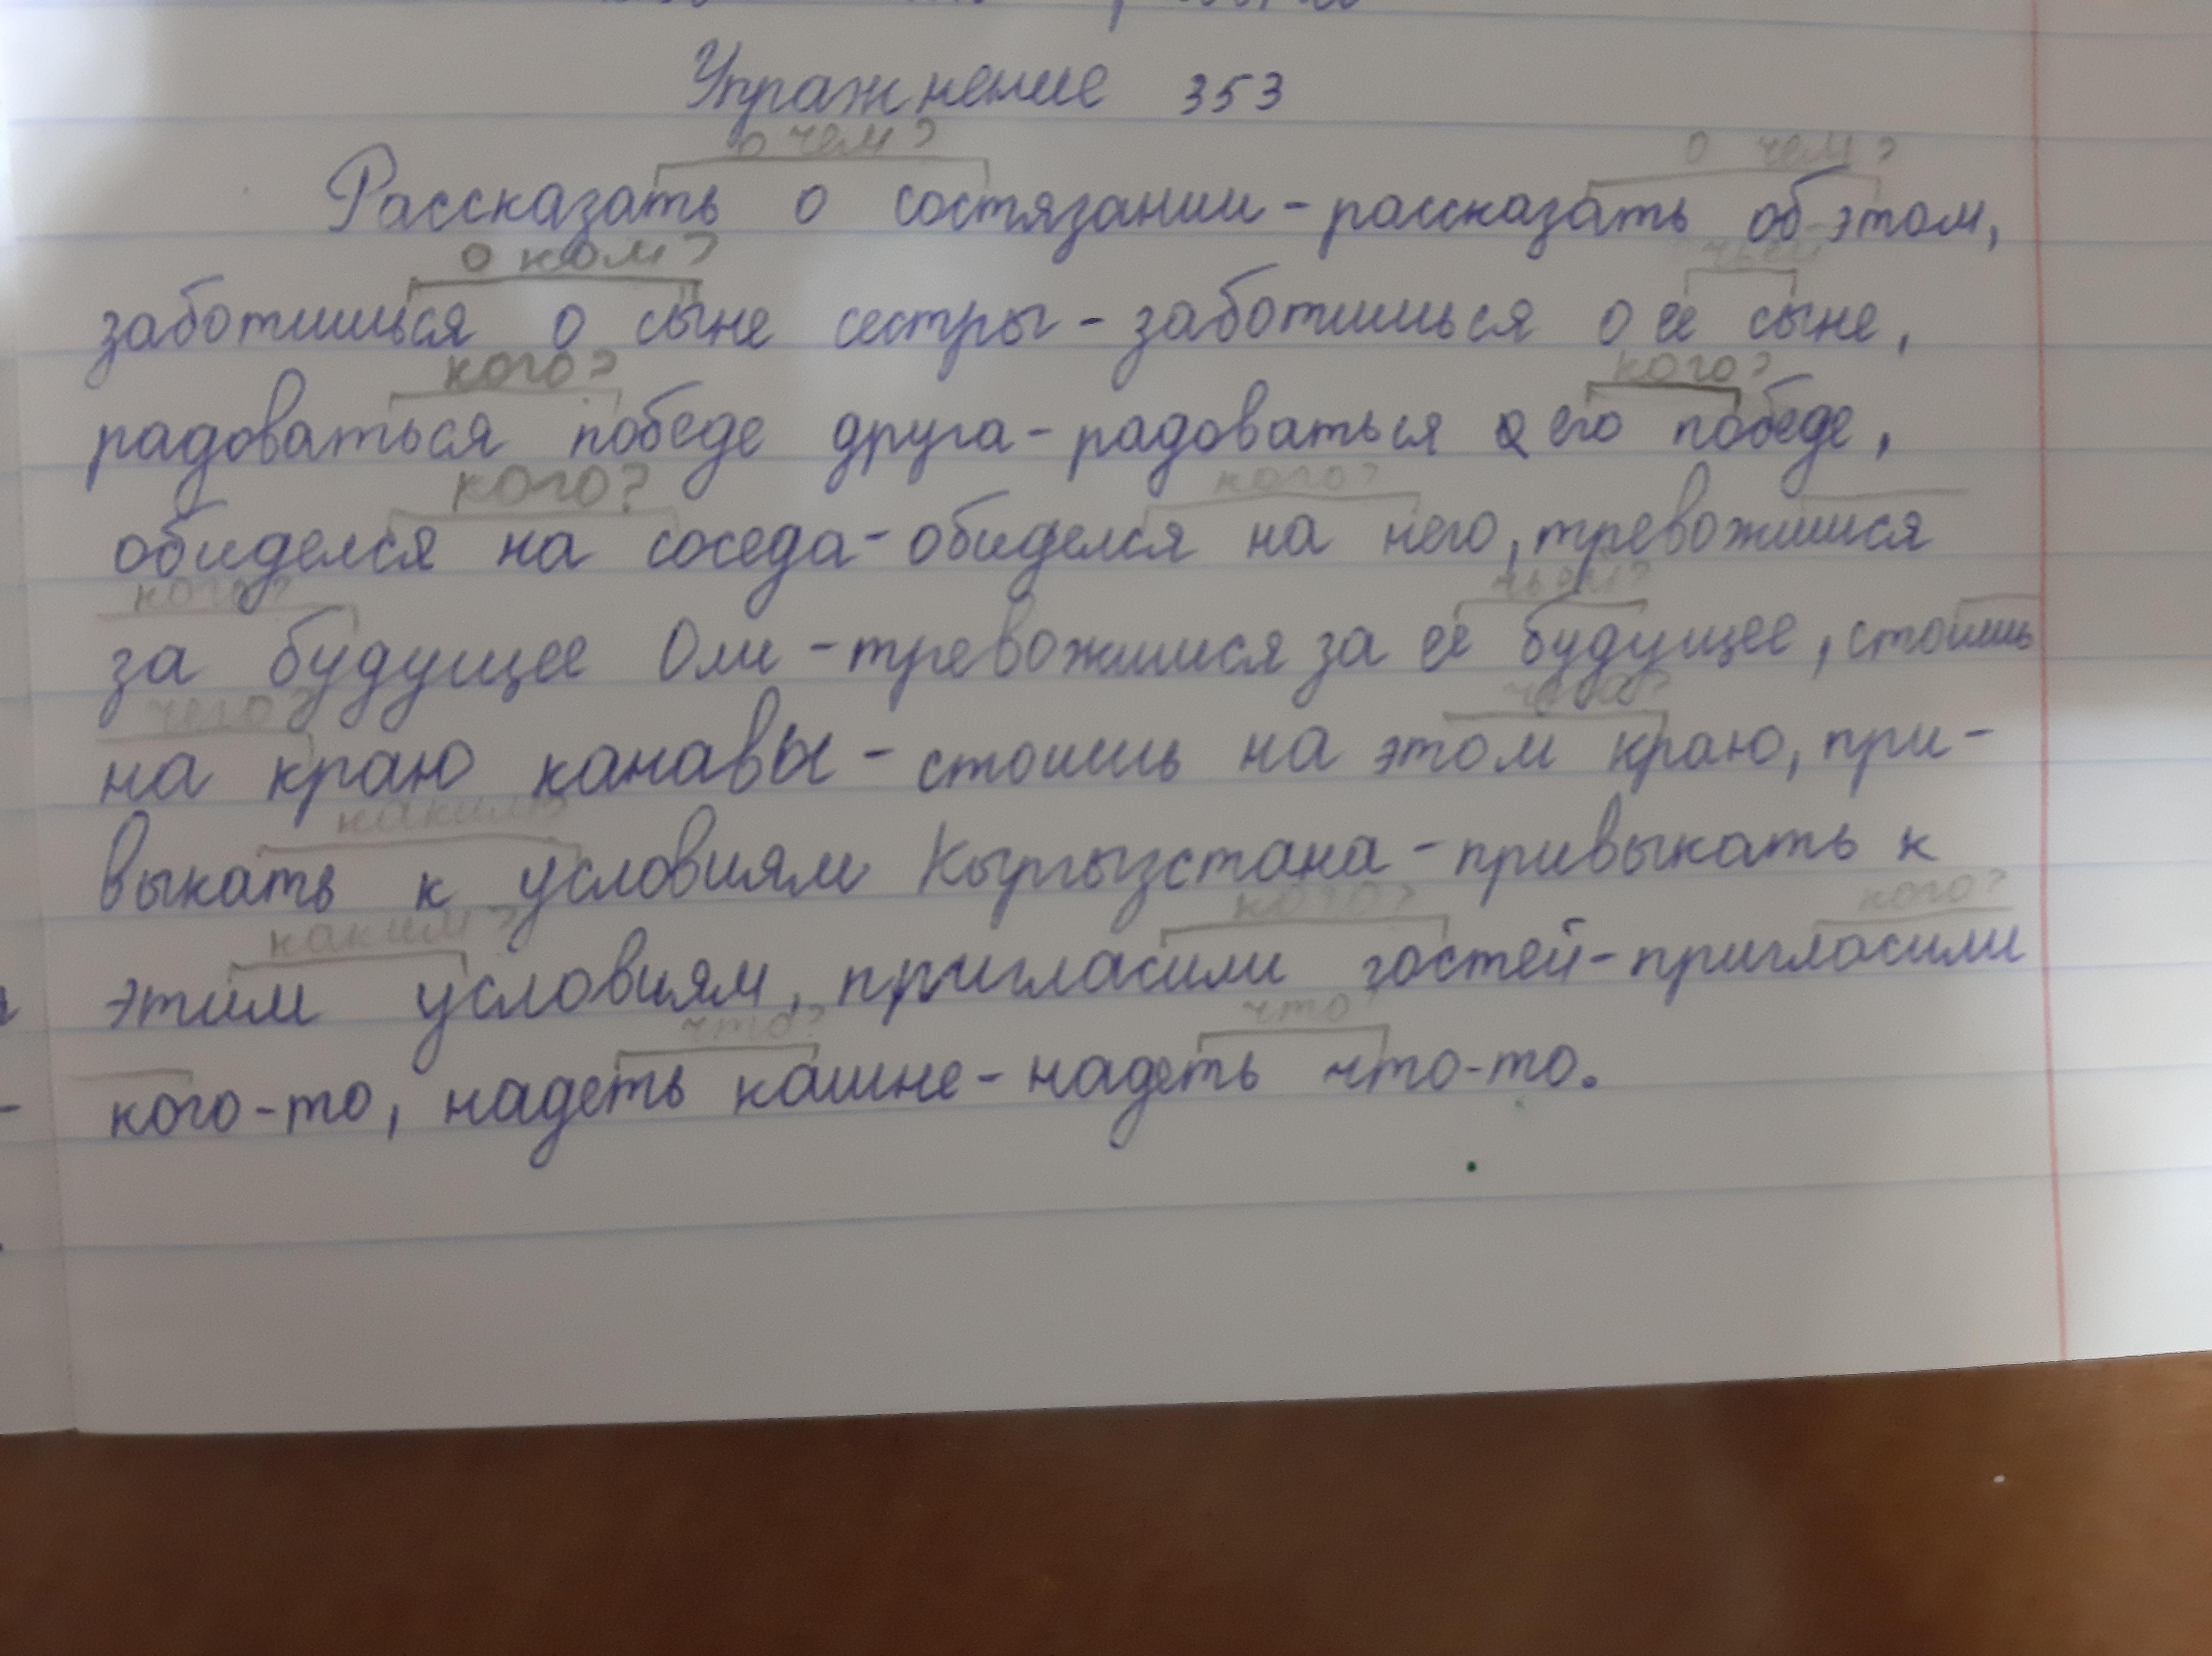 Упражнение 353
о чем? о чем?
Рассказать о состязании - рассказать об этом,
о ком? чьём
заботишься о сыне сестры - заботишься о ее сыне,
кого? кого?
радоваться победе друга - радоваться его победе,
кого? кого?
обиделся на соседа - обиделся на него, тревожишися
кого? чьём?
за будущее Оли - тревожишися за ее будущее, стоишь
чего? чего?
на краю канавы - стоишь на этом краю, при-
каким?
выкать к условиям Кыргызстана - привыкать к
каким? кого? кого?
этим условиям, пригласили гостей - пригласили
что? что
кого-то, надеть кашне - надеть что-то.